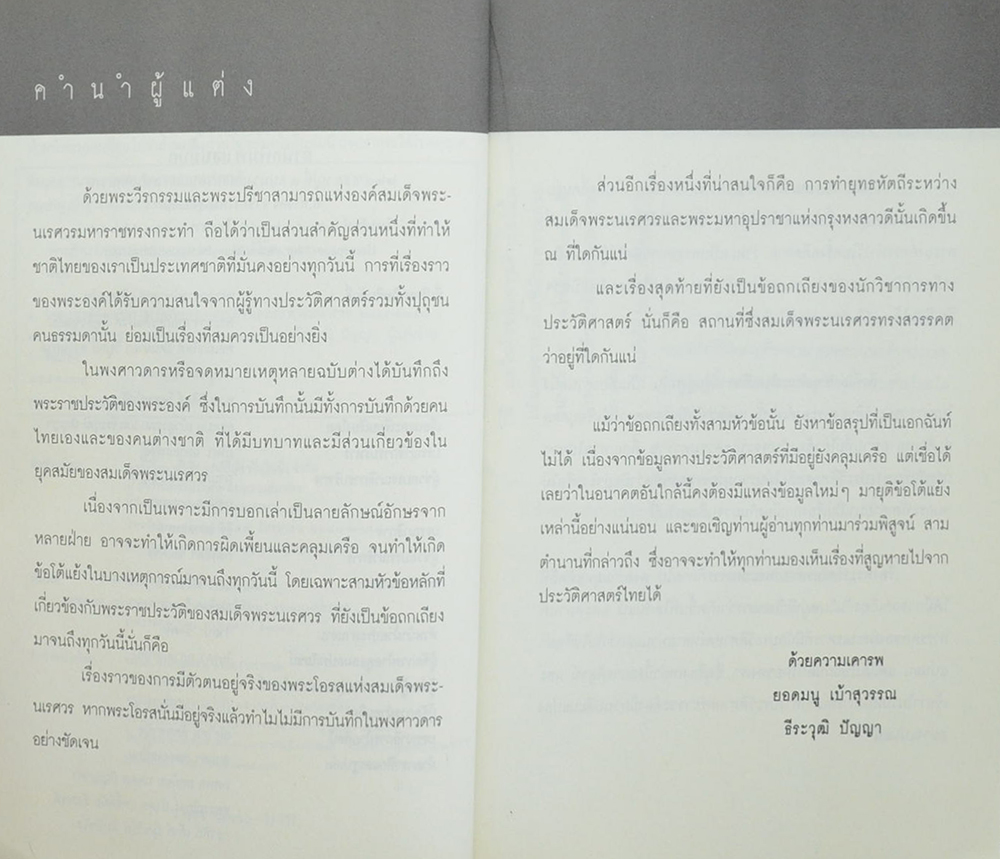 คำนำผู้แต่ง
ด้วยพระวีรกรรมและพระปรีชาสามารถแห่งองค์สมเด็จพระ-
นเรศวรมหาราชทรงกระทำ ถือได้ว่าเป็นส่วนสำคัญส่วนหนึ่งที่ทำให้
ชาติไทยของเราเป็นประเทศชาติที่มั่นคงอย่างทุกวันนี้ การที่เรื่องราว
ของพระองค์ได้รับความสนใจจากผู้รู้ทางประวัติศาสตร์รวมทั้งปุถุชน
คนธรรมดานั้น ย่อมเป็นเรื่องที่สมควรเป็นอย่างยิ่ง
ในพงศาวดารหรือจดหมายเหตุหลายฉบับต่างได้บันทึกถึง
พระราชประวัติของพระองค์ ซึ่งในการบันทึกนั้นมีทั้งการบันทึกด้วยคน
ไทยเองและของคนต่างชาติ ที่ได้มีบทบาทและมีส่วนเกี่ยวข้องใน
ยุคสมัยของสมเด็จพระนเรศวร
เนื่องจากเป็นเพราะมีการบอกเล่าเป็นลายลักษณ์อักษรจาก
หลายฝ่าย อาจจะทำให้เกิดการผิดเพี้ยนและคลุมเครือ จนทำให้เกิด
ข้อโต้แย้งในบางเหตุการณ์มาจนถึงทุกวันนี้ โดยเฉพาะสามหัวข้อหลักที่
เกี่ยวข้องกับพระราชประวัติของสมเด็จพระนเรศวร ที่ยังเป็นข้อถกเถียง
มาจนถึงทุกวันนี้นั่นก็คือ
เรื่องราวของการมีตัวตนอยู่จริงของพระโอรสแห่งสมเด็จพระ-
นเรศวร หากพระโอรสนั่นมีอยู่จริงแล้วทำไมไม่มีการบันทึกในพงศาวดาร
อย่างชัดเจน
ส่วนอีกเรื่องหนึ่งที่น่าสนใจก็คือ การทำยุทธหัตถีระหว่าง
สมเด็จพระนเรศวรและพระมหาอุปราชาแห่งกรุงหงสาวดีนั้นเกิดขึ้น
ณ ที่ใดกันแน่
และเรื่องสุดท้ายที่ยังเป็นข้อถกเถียงของนักวิชาการทาง
ประวัติศาสตร์ นั่นก็คือ สถานที่ซึ่งสมเด็จพระนเรศวรทรงสวรรคต
ว่าอยู่ที่ใดกันแน่
แม้ว่าข้อถกเถียงทั้งสามหัวข้อนั้น ยังหาข้อสรุปที่เป็นเอกฉันท์
ไม่ได้ เนื่องจากข้อมูลทางประวัติศาสตร์ที่มีอยู่ยังคลุมเครือ แต่เชื่อได้
เลยว่าในอนาคตอันใกล้นี้คงต้องมีแหล่งข้อมูลใหม่ๆ มายุติข้อโต้แย้ง
เหล่านี้อย่างแน่นอน และขอเชิญท่านผู้อ่านทุกท่านมาร่วมพิสูจน์ สาม
ตำนานที่กล่าวถึง ซึ่งอาจจะทำให้ทุกท่านมองเห็นเรื่องที่สูญหายไปจาก
ประวัติศาสตร์ไทยได้
ด้วยความเคารพ
ยอดมนู เบ้าสุวรรณ
ธีระวุฒิ ปัญญา